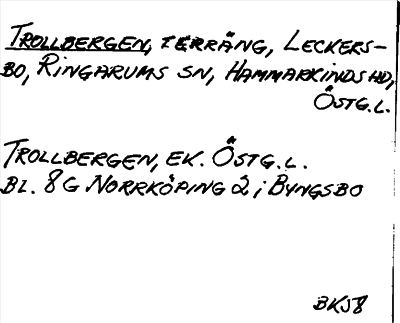 TROLLBERGEN, TERRÄNG, LECKERS-
BO, RINGARUMS SN, HAMMARKINDS HD,
ÖSTG.L.
TROLLBERGEN, EK. ÖSTG.L.
BL. 8G NORRKÖPING 2 i BYNGSBO
BKS8